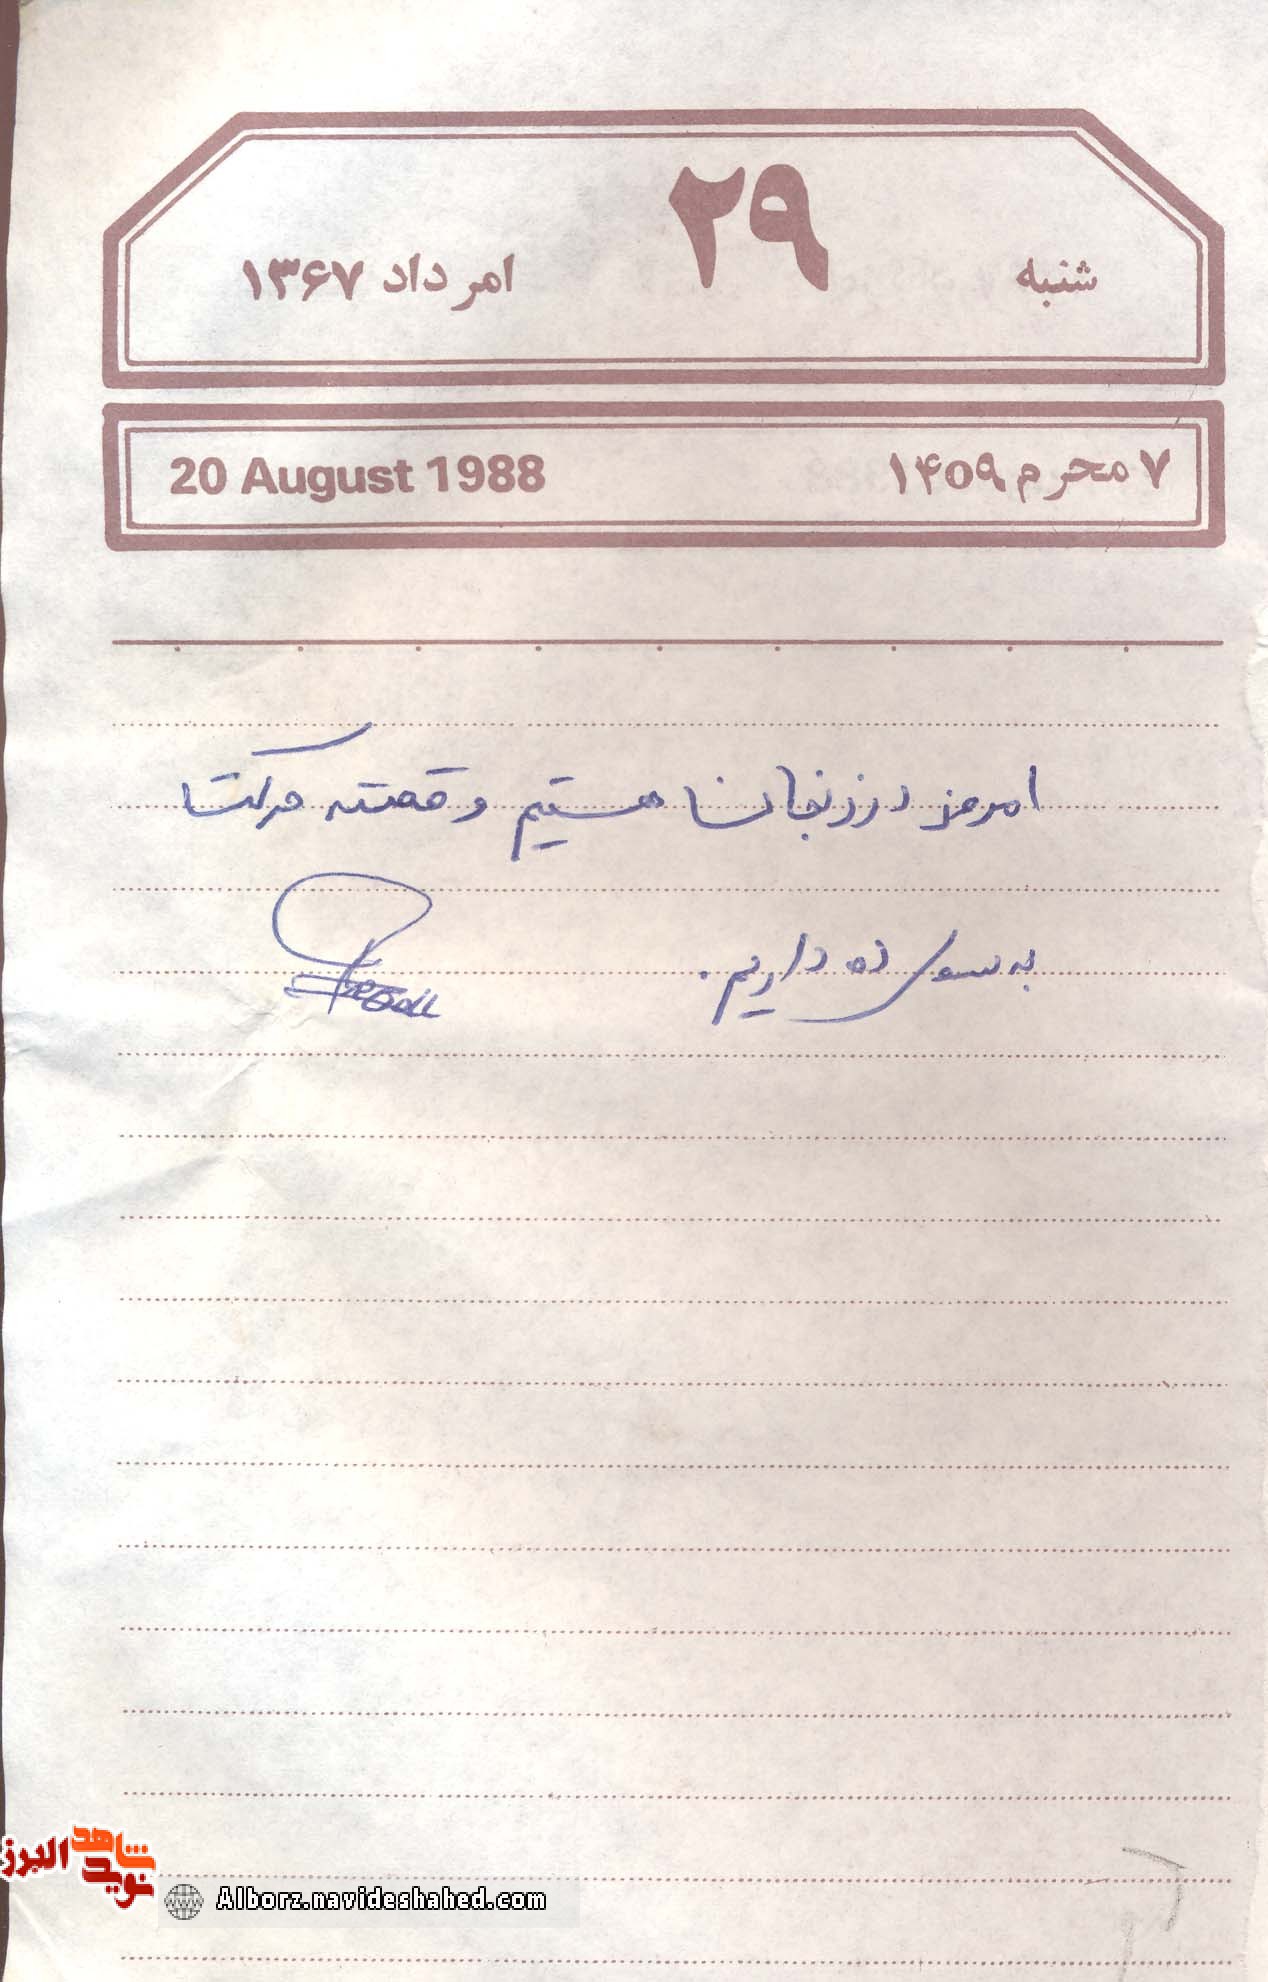 شنبه ۲۹ امرداد ۱۳۶۷
۷ محرم ۱۴۰۹ 20 August 1988
امروز در زنجان هستیم و قصد حرکت
به سوی ده داریم.
نوید شاهد البرز
Alborz.navideshahed.com